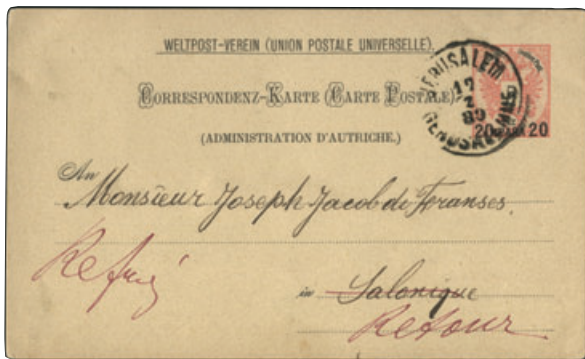 WELTPOST-VEREIN (UNION POSTALE UNIVERSELLE).
CORRESPONDENZ-KARTE (CARTE POSTALE).
(ADMINISTRATION D'AUTRICHE.)
JERUSALEM
12
89
GERUSALEMME
20 PARA 20
An
Monsieur Joseph Jacob de Franses.
Refusé
in Salonique
Retour